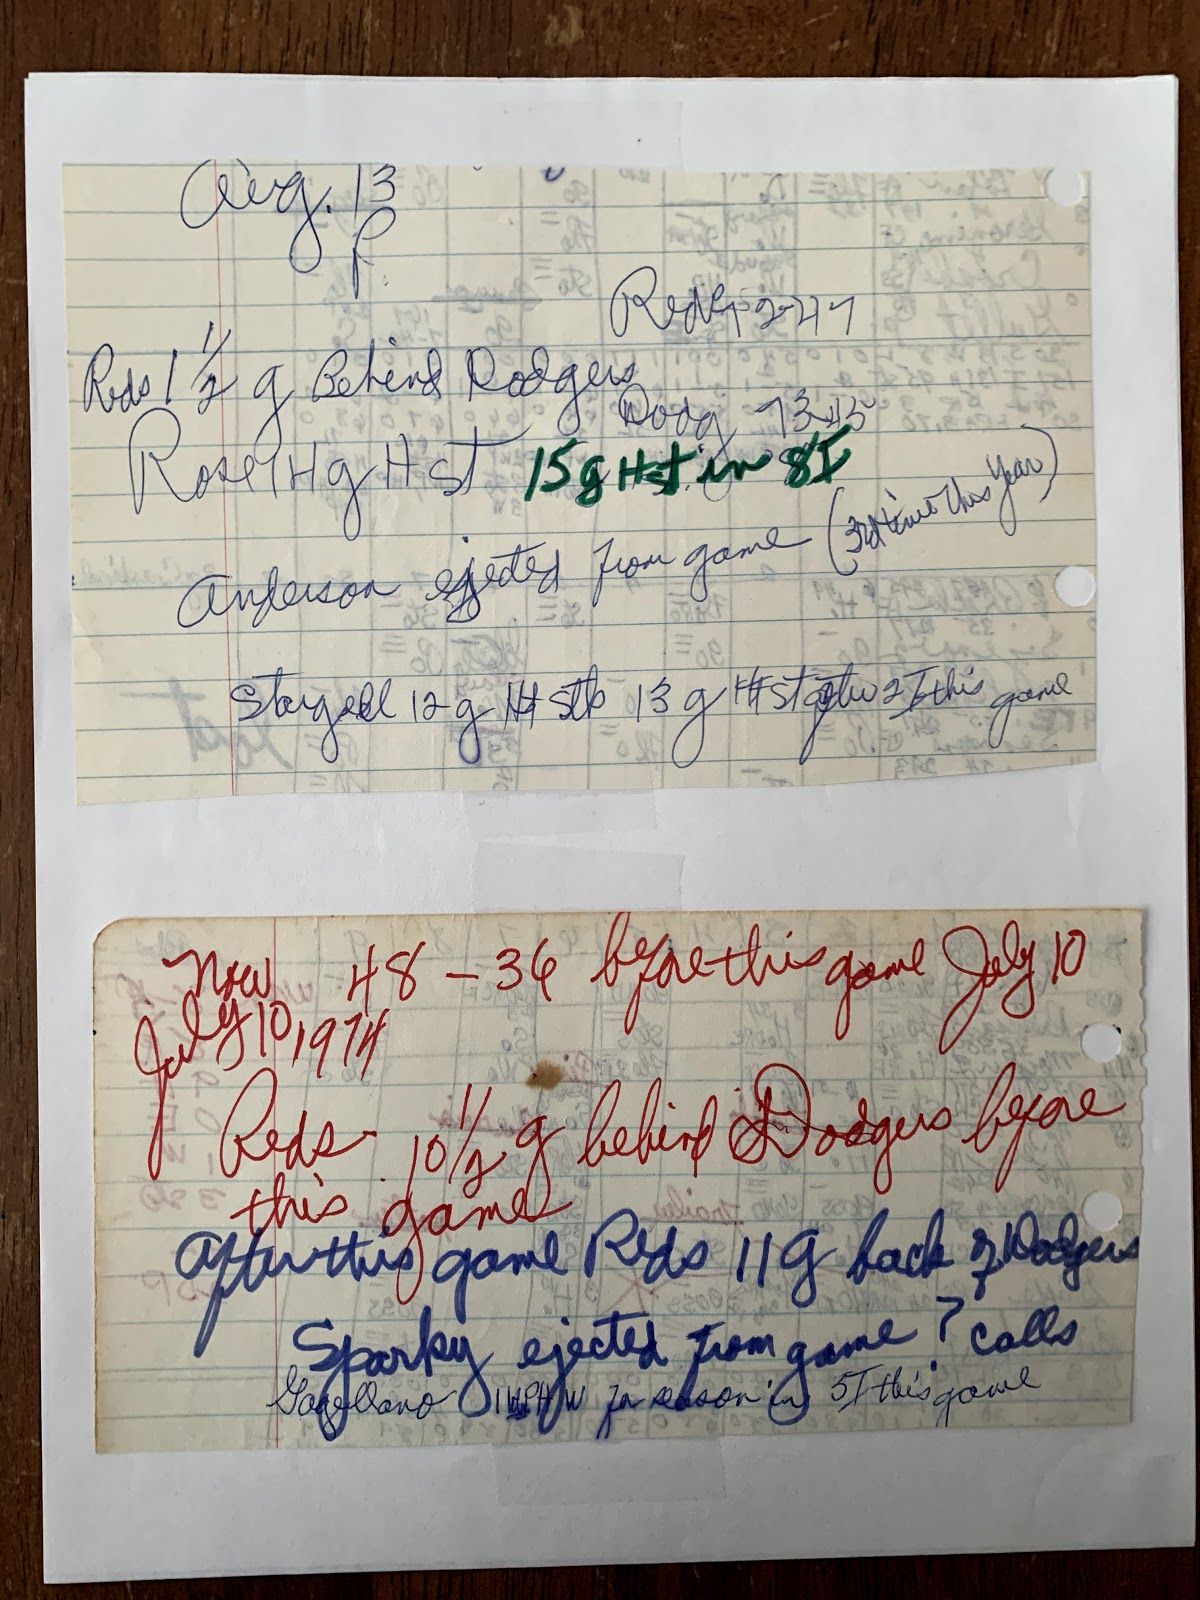 Aug. 13
P.
Reds 72-47
Reds 1 1/2 g Behind Dodgers
Dodg 73-45
Rose 14g Hst 15g Hst in 8I
Anderson ejected from game (3rd time this year)
Stargell 12g Hst 13g Hst 2I this game
Now 48-36 before this game July 10
July 10, 1974
Reds - 10 1/2 g behind Dodgers before
this game
After this game Reds 11g back of Dodgers
Sparky ejected from game ? calls
Gagliano PH W for season in 5I this game